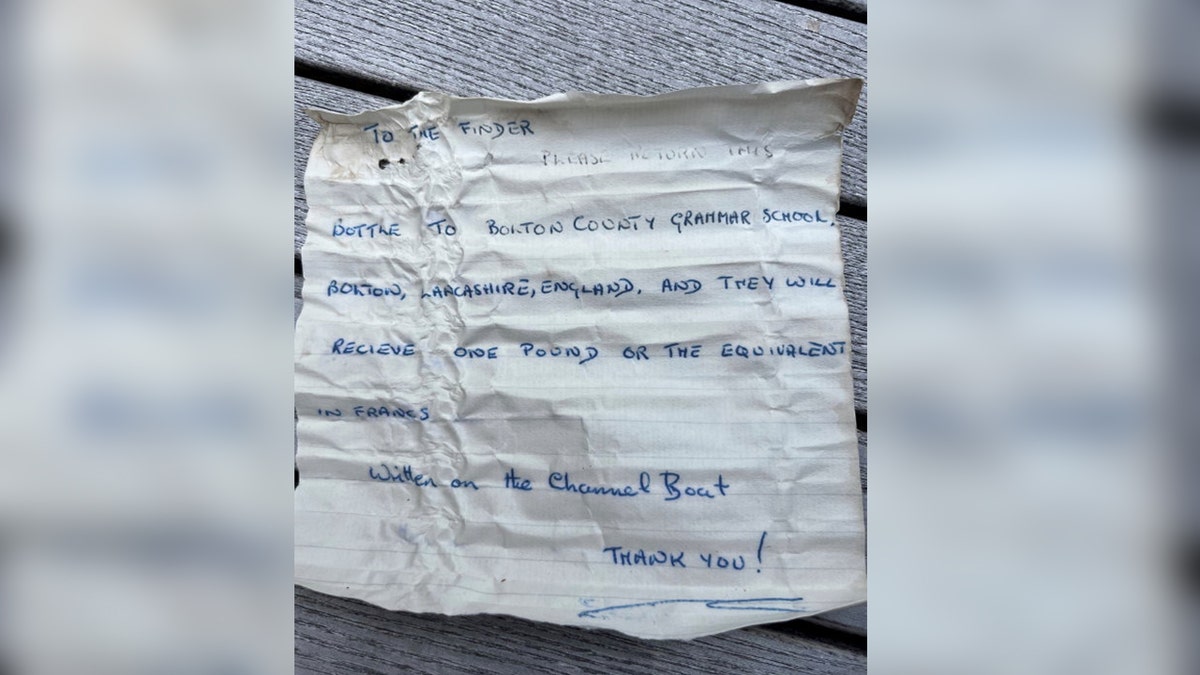 TO THE FINDER
PLEASE RETURN THIS
BOTTLE TO BOLTON COUNTY GRAMMAR SCHOOL.
BOLTON, LANCASHIRE, ENGLAND. AND THEY WILL
RECIEVE ONE POUND OR THE EQUIVALENT
IN FRANCS
Written on the Channel Boat
THANK YOU!